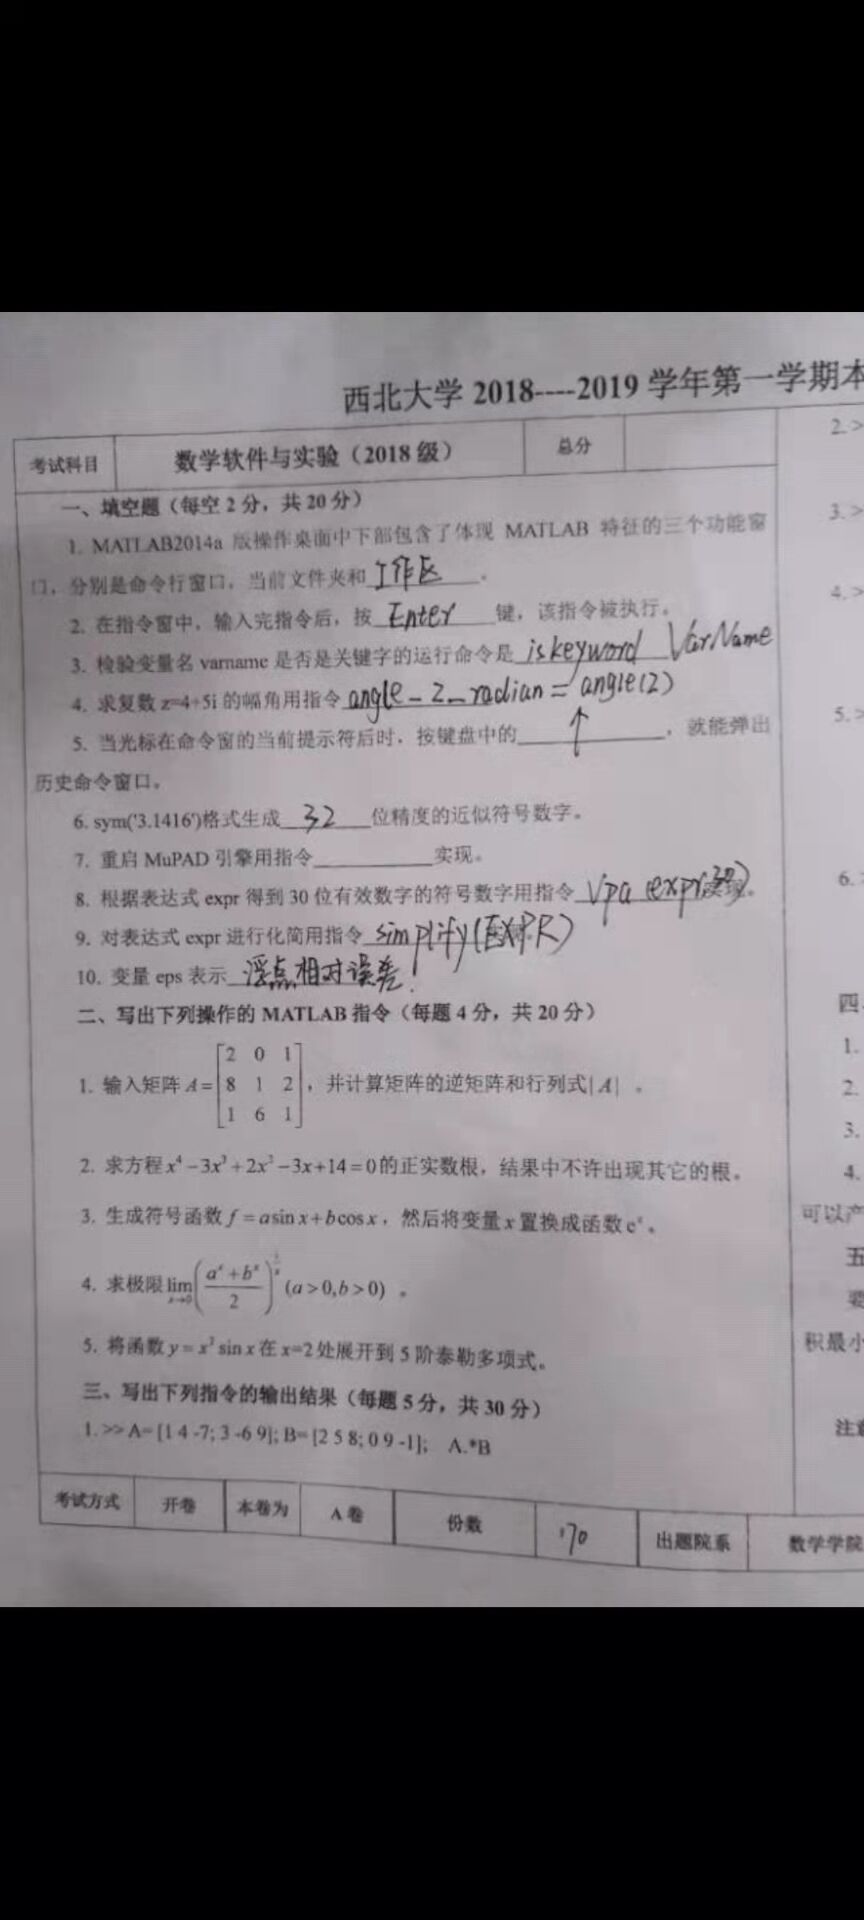 西北大学 2018----2019 学年第一学期本
考试科目 数学软件与实验（2018 级） 总分
一、填空题（每空 2 分，共 20 分）
1. MATLAB2014a 版操作桌面中下部包含了体现 MATLAB 特征的三个功能窗
口，分别是命令行窗口、当前文件夹和 工作区 。
2. 在指令窗中，输入完指令后，按 Enter 键，该指令被执行。
3. 检验变量名 varname 是否是关键字的运行命令是 iskeyword VarName
4. 求复数 z=4+5i 的幅角用指令 angle_z_radian = angle(z)
5. 当光标在命令窗的当前提示符后时，按键盘中的 ↑ ，就能弹出
历史命令窗口。
6. sym('3.1416')格式生成 32 位精度的近似符号数字。
7. 重启 MuPAD 引擎用指令 实现。
8. 根据表达式 expr 得到 30 位有效数字的符号数字用指令 vpa(expr,30) 实现。
9. 对表达式 expr 进行化简用指令 simplify(EXPR)
10. 变量 eps 表示 浮点相对误差。
二、写出下列操作的 MATLAB 指令（每题 4 分，共 20 分）
1. 输入矩阵 A = [2 0 1; 8 1 2; 1 6 1]，并计算矩阵的逆矩阵和行列式|A| 。
2. 求方程 x⁴−3x³+2x²−3x+14=0 的正实数根，结果中不许出现其它的根。
3. 生成符号函数 f = a sin x + b cos x，然后将变量 x 置换成函数 eˣ。
4. 求极限 lim x→0 ((aˣ+bˣ)/2)^(1/x) (a>0,b>0) 。
5. 将函数 y = x² sin x 在 x=2 处展开到 5 阶泰勒多项式。
三、写出下列指令的输出结果（每题 5 分，共 30 分）
1. >> A=[1 4 -7; 3 -6 9]; B=[2 5 8; 0 9 -1]; A.*B
考试方式 开卷 本卷为 A 卷 份数 170 出题院系 数学学院
2. >
3. >
4. >
5. >
6. >
四、
1.
2.
3.
4.
可以产
五
要
积最小
注意